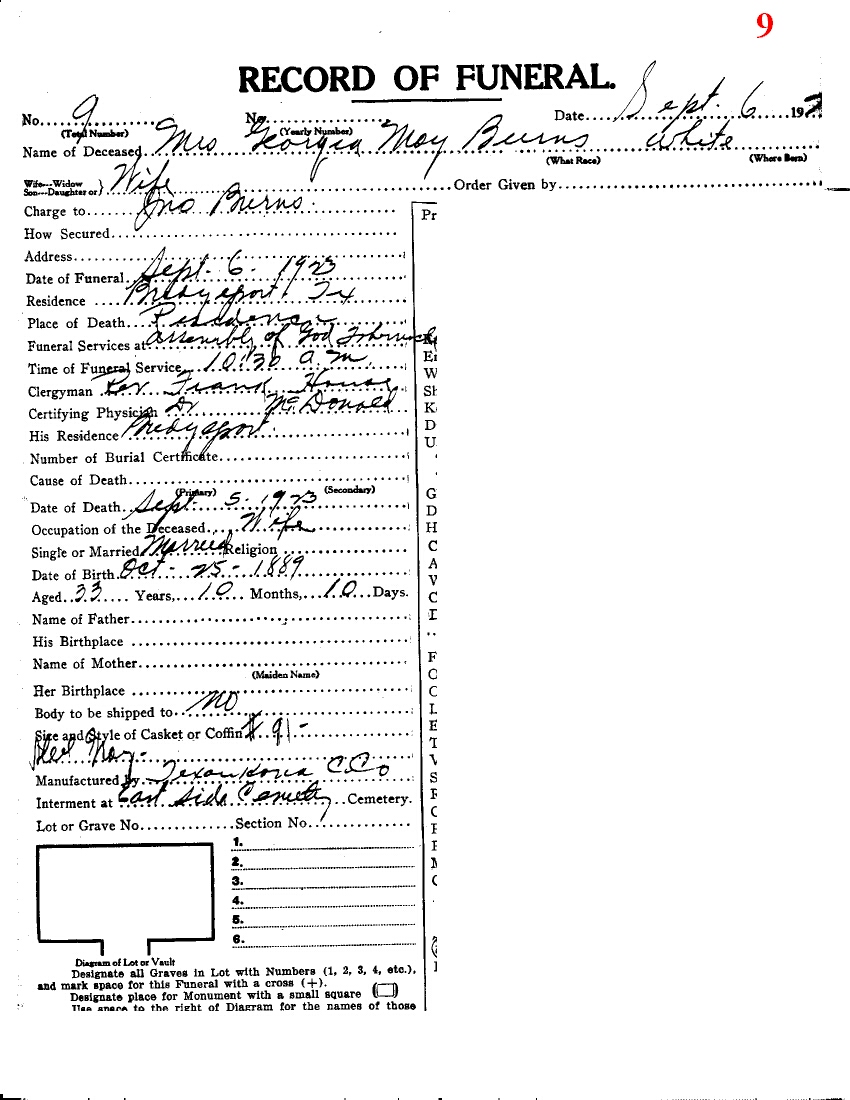 9
RECORD OF FUNERAL.
No. 9 No. Date Sept. 6 192
(Total Number) (Yearly Number)
Name of Deceased Mrs Georgia May Burns white
(What Race) (Where Born)
Wife---Widow
Son---Daughter or} Wife Order Given by
Charge to Jno Burns.
How Secured
Address
Date of Funeral Sept. 6. 1923
Residence Bridgeport Tx
Place of Death Residence
Funeral Services at assembly of God
Time of Funeral Service 10:30 a.m.
Clergyman Rev. Frank House
Certifying Physician Dr McDonald
His Residence Bridgeport
Number of Burial Certificate
Cause of Death
(Primary) (Secondary)
Date of Death Sept. 5. 1923
Occupation of the Deceased Wife
Single or Married Married Religion
Date of Birth Oct - 25 - 1889
Aged 33 Years, 10 Months, 10 Days.
Name of Father
His Birthplace
Name of Mother
(Maiden Name)
Her Birthplace
Body to be shipped to NO
Size and Style of Casket or Coffin # 91 -
Manufactured by Texarkana C. Co
Interment at East Side Cemetery Cemetery.
Lot or Grave No. Section No.
1.
2.
3.
4.
5.
6.
Diagram of Lot or Vault
Designate all Graves in Lot with Numbers (1, 2, 3, 4, etc.),
and mark space for this Funeral with a cross (+).
Designate place for Monument with a small square
Use space to the right of Diagram for the names of those
Pr
E
W
Sh
K
D
U
G
D
H
C
A
V
C
I
F
C
C
L
E
T
V
S
F
C
F
F
M
C